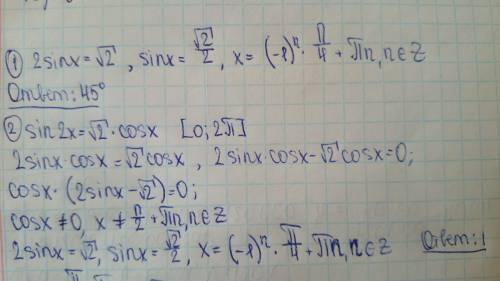 ① 2sinx=√2, sinx=√2/2, x=(-1)ⁿ·π/4+πn, n∈Z
Ответ: 45°
② sin2x=√2·cosx [0; 2π]
2sinx·cosx=√2cosx, 2sinx·cosx-√2cosx=0;
cosx·(2sinx-√2)=0;
cosx≠0, x≠π/2+πn, n∈Z
2sinx=√2, sinx=√2/2, x=(-1)ⁿ·π/4+πn, n∈Z Ответ: 1